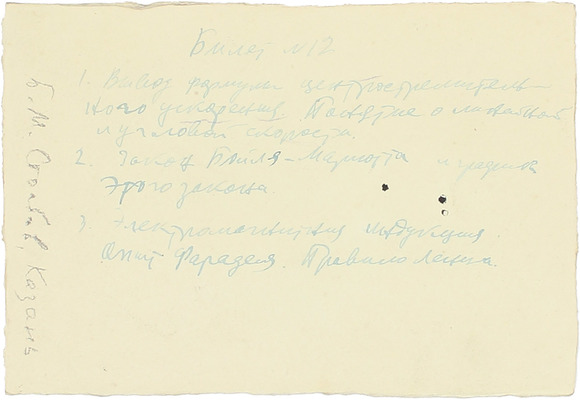 Билет №12
1. Вывод формулы центростремитель-
ного ускорения. Понятие о линейной
и угловой скорости.
2. Закон Бойля-Мариотта и график
этого закона.
3. Электромагнитная индукция.
Опыт Фарадея. Правило Ленца.
Б. М. Столбов, Казань